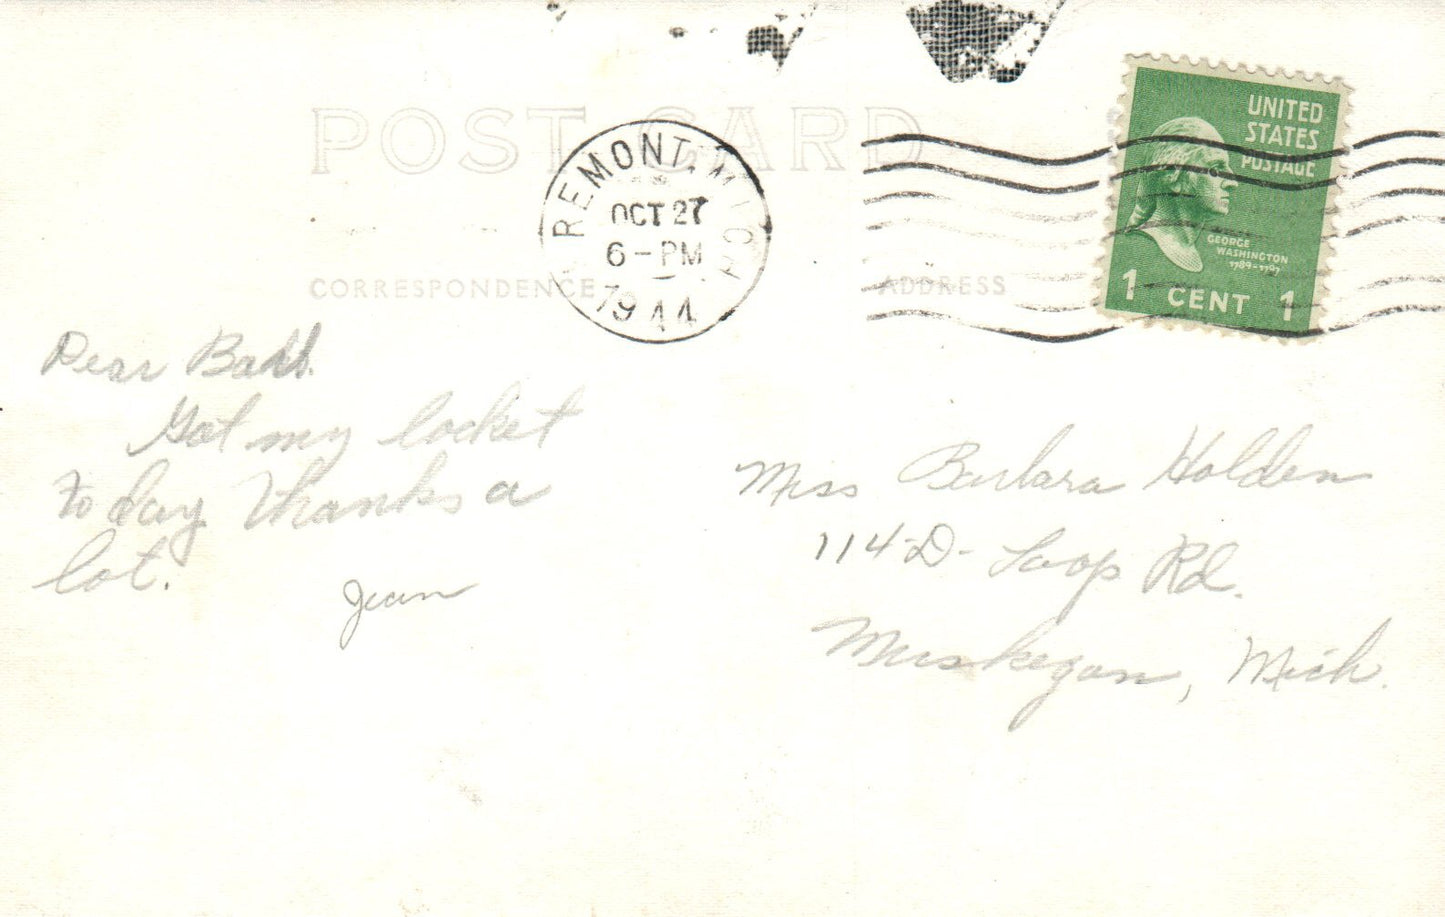 POST CARD
FREMONT, MICH
OCT 27
6-PM
1944
UNITED
STATES
POSTAGE
GEORGE
WASHINGTON
1789-1797
1 CENT 1
CORRESPONDENCE
ADDRESS
Dear Barb.
Got my locket
to day thanks a
lot.
Jean
Miss Barbara Holden
114-D- Loop Rd.
Muskegon, Mich.